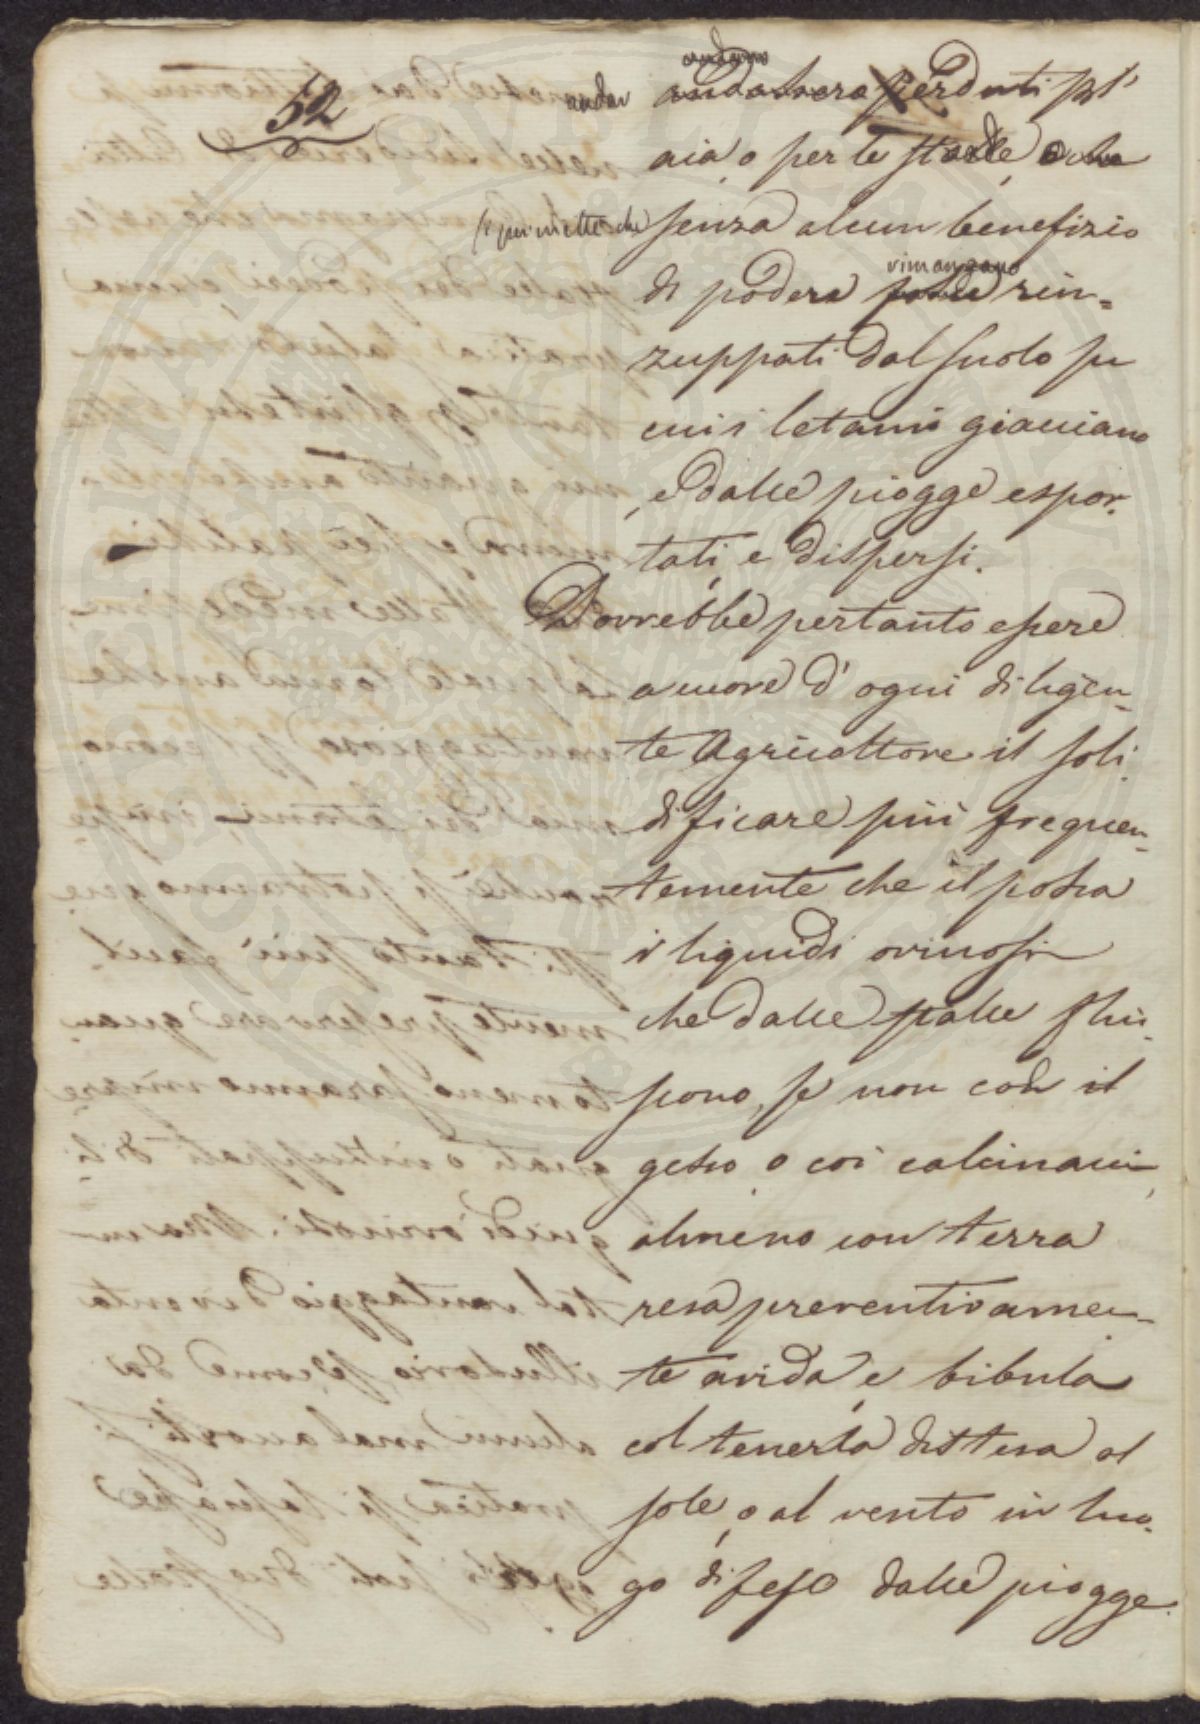 52
andar perduti pll'
aia, o per le strade, o che
(si permette che) senza alcun benefizio
rimangano
di podere rin=
zuppati dal suolo su
cui i letami giacciano
, e dalle piogge espor-
tati, e dispersi.
Dovrebbe pertanto essere
a cuore d' ogni diligen-
te Agricoltore il soli-
dificare più frequen-
temente che il possa
i liquidi orinosi
che dalle stalle flui-
scono, se non con il
gesso o coi calcinacci,
almeno con terra
resa preventivamen-
te arida, e bibula
col tenerla distesa al
sole, o al vento in luo-
go difeso dalle piogge.